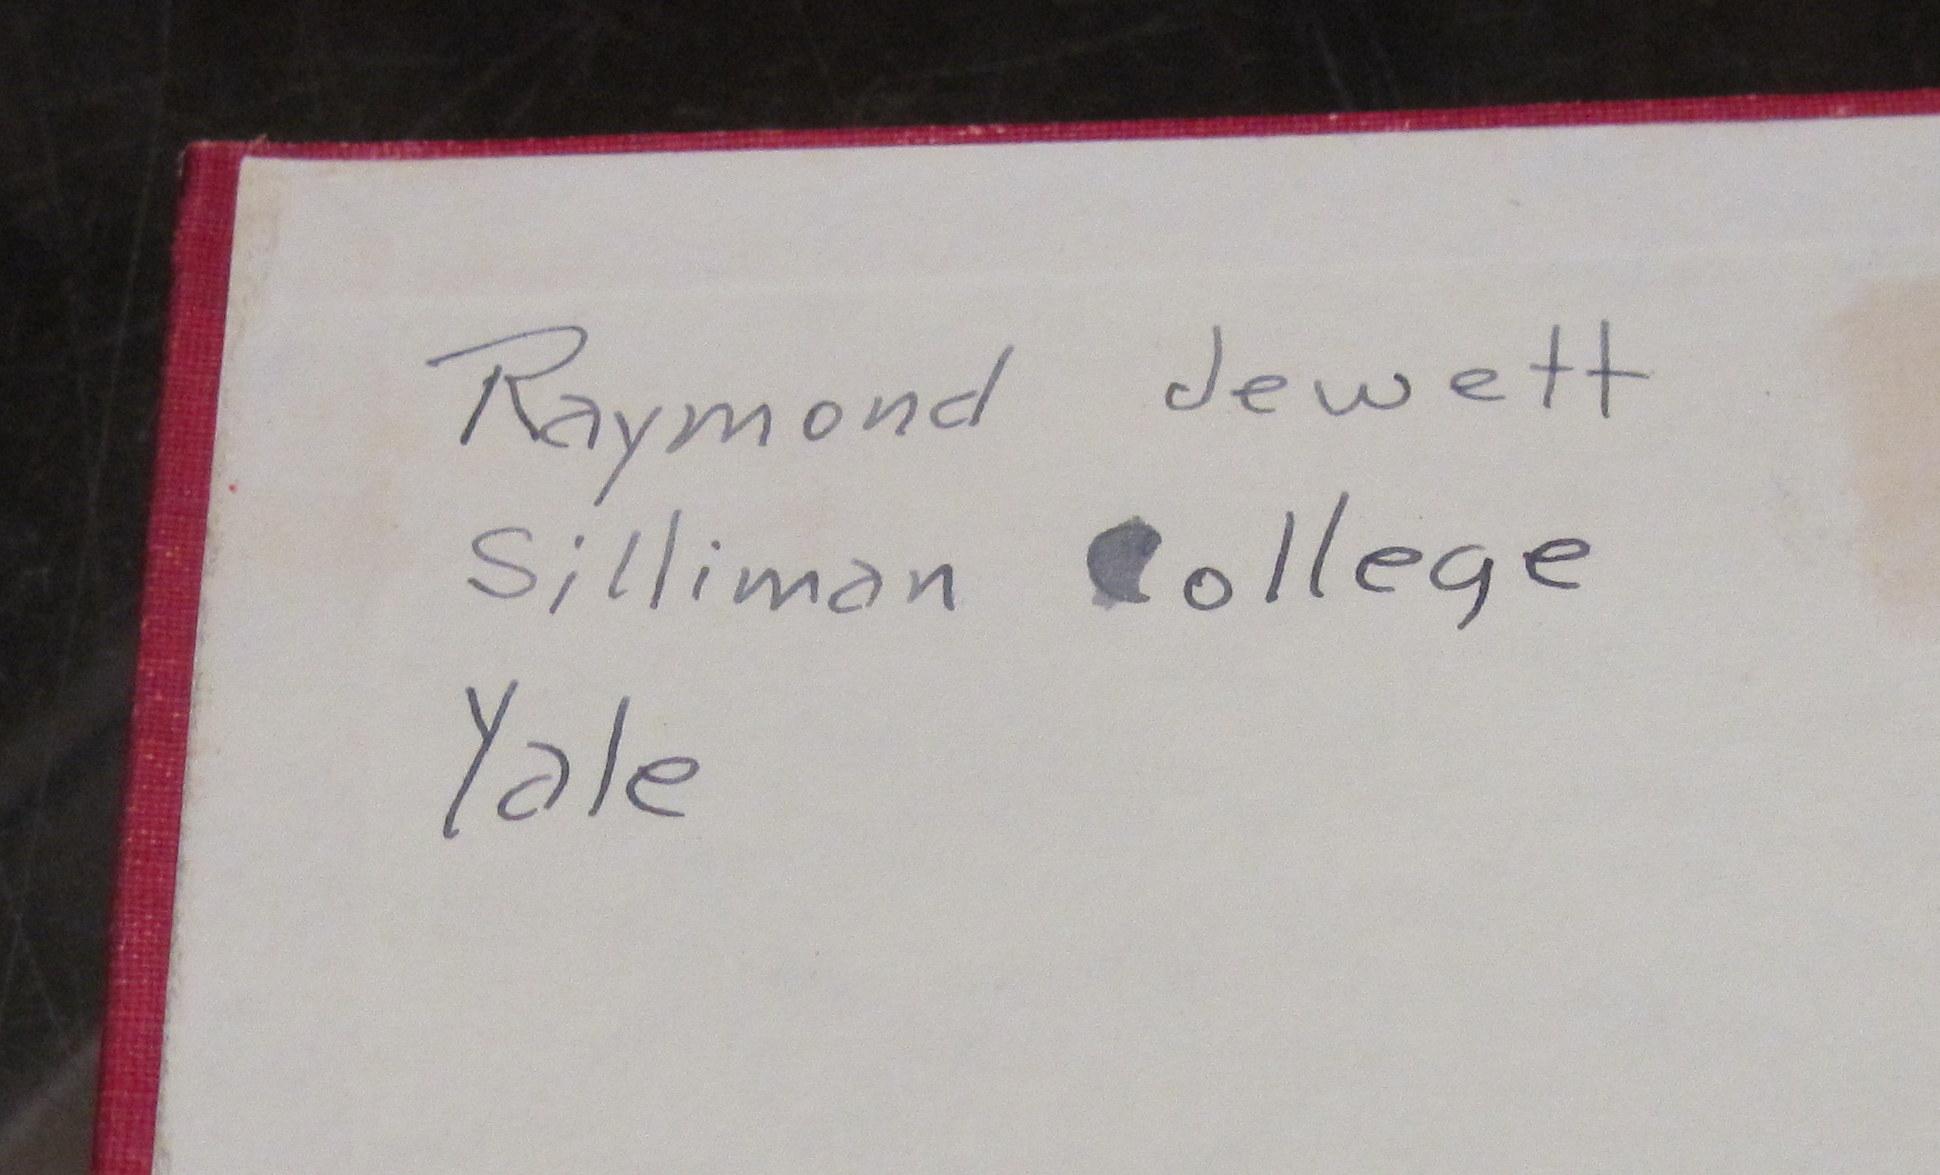 Raymond Jewett
Silliman College
Yale